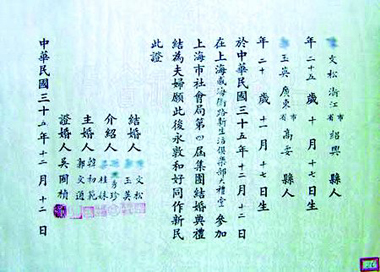 文松浙江省市紹興縣人
年二十五歲十月十七日生
玉英廣東省市高要縣人
年二十歲十一月十七日生
於中華民國三十五年十二月十二日
在上海威海衛路新生活俱樂部大禮堂參加
上海市社會局第四屆集團結婚典禮
結為夫婦願此後永敦和好同作新民
此證
結婚人 文松
玉英
介紹人 秀珍
桂妹
主婚人 初範
郭文通
證婚人 吳國楨
中華民國三十五年十二月十二日